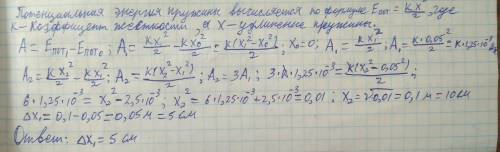 Потенциальная энергия пружины вычисляется по формуле Eпот = kx²/2, где
k - Коэффициент жёсткости, а X - удлинение пружины.
A = Eпот1 - Eпот0; A = kx₁²/2 - kx₀²/2 = k(x₁² - x₀²)/2; x₀ = 0; A₁ = kx₁²/2; A₁ = k·0.05²/2 = k·1,25·10⁻³ Дж
A₂ = kx₂²/2 - kx₁²/2; A₂ = k(x₂² - x₁²)/2; A₂ = 3A₁; 3·k·1.25·10⁻³ = k(x₂² - 0.05²)/2;
6·1,25·10⁻³ = x₂² - 2,5·10⁻³; x₂² = 6·1,25·10⁻³ + 2,5·10⁻³ = 0,01; x₂ = √0,01 = 0,1 м = 10 см
Δx₁ = 0,1 - 0,05 = 0,05 м = 5 см
Ответ: Δx₁ = 5 см